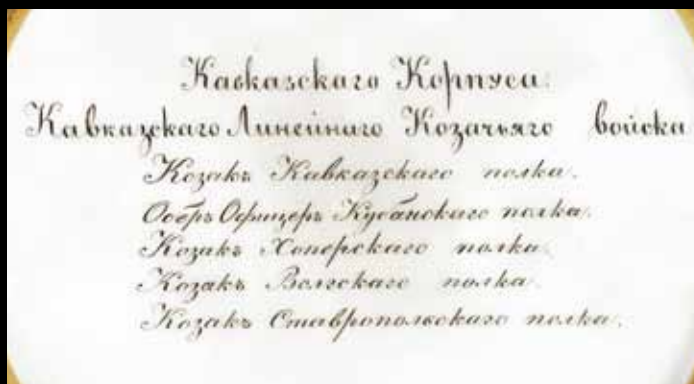 Кавказскаго Корпуса.
Кавказскаго Линейнаго Козачьяго войска
Козакъ Кавказскаго полка.
Оберъ Офицеръ Кубанскаго полка.
Козакъ Хоперскаго полка.
Козакъ Волгскаго полка.
Козакъ Ставропольскаго полка.